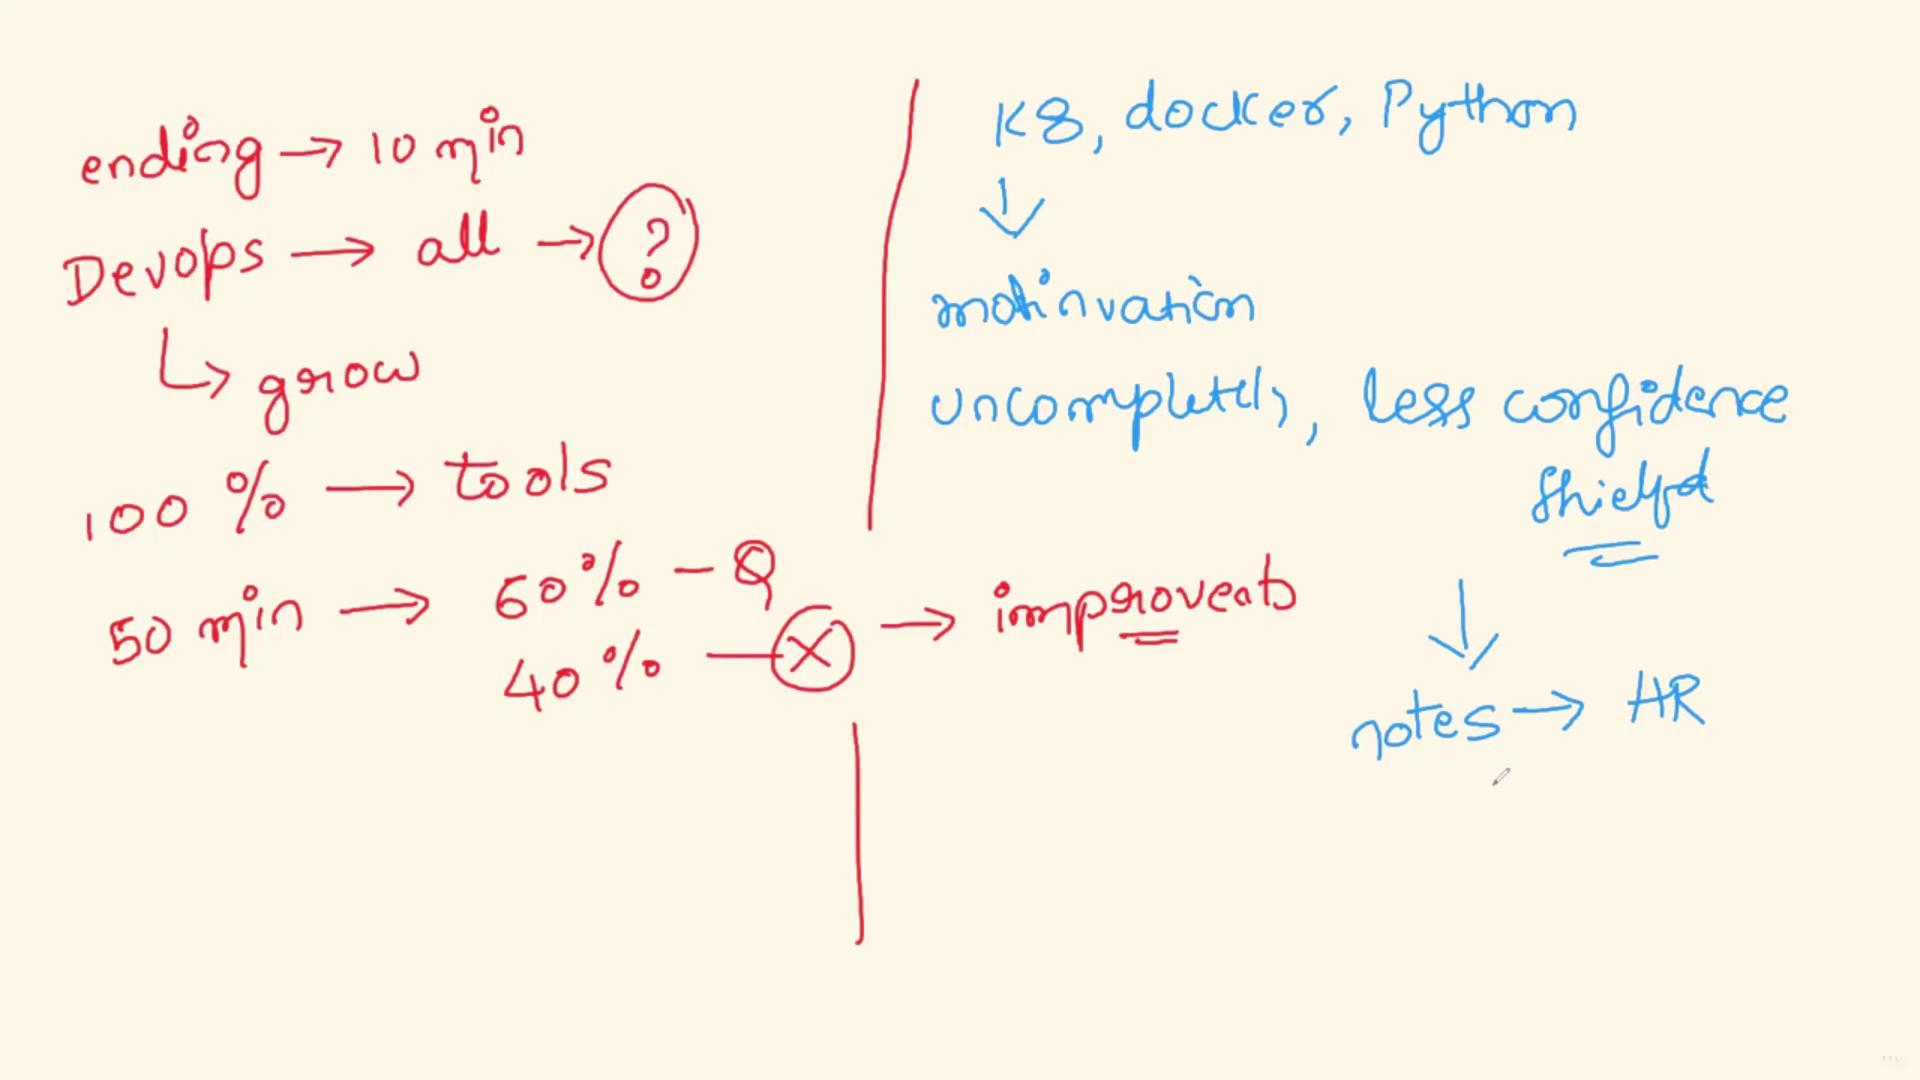 ending → 10 min
Devops → all → ?
↳ grow
100 % → tools
50 min → 60% - Q
40% - X → improvents
K8, docker, Python
↓
motinvation
uncompletely, less confidence
↓
notes → HR